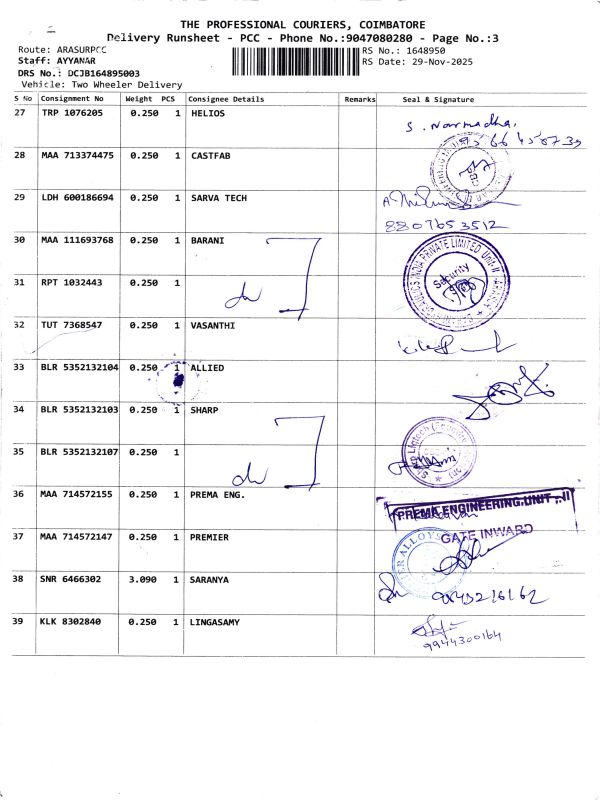 THE PROFESSIONAL COURIERS, COIMBATORE
Delivery Runsheet - PCC - Phone No.:9047080280 - Page No.:3
Route: ARASURPCC
RS No.: 1648950
Staff: AYYANAR
RS Date: 29-Nov-2025
DRS No.: DCJB164895003
Vehicle: Two Wheeler Delivery
S No Consignment No Weight PCS Consignee Details Remarks Seal & Signature
27 TRP 1076205 0.250 1 HELIOS
S. Narmadha,
28 MAA 713374475 0.250 1 CASTFAB
29 LDH 600186694 0.250 1 SARVA TECH
8807653512
30 MAA 111693768 0.250 1 BARANI
INDIA PRIVATE LIMITED Unit II
Security
31 RPT 1032443 0.250 1
do
32 TUT 7368547 0.250 1 VASANTHI
33 BLR 5352132104 0.250 1 ALLIED
34 BLR 5352132103 0.250 1 SHARP
35 BLR 5352132107 0.250 1
do
36 MAA 714572155 0.250 1 PREMA ENG.
PREMA ENGINEERING UNIT - II
GATE INWARD
37 MAA 714572147 0.250 1 PREMIER
ALLOYS
38 SNR 6466302 3.090 1 SARANYA
9843216162
39 KLK 8302840 0.250 1 LINGASAMY
9944300164